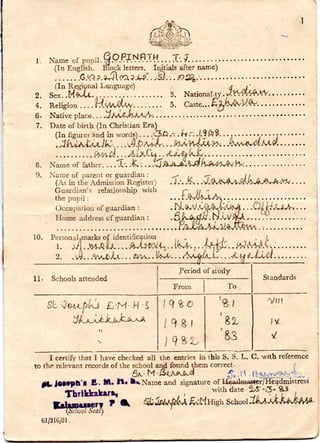 1
1. Name of pupil. GOPINATH . T. J
(In English. Block letters. Initials after name)
(In Regional Language)
2. Sex. Male 3. Nationality Indian
4. Religion Hindu 5. Caste... Ezhava
6. Native place. Trichur
7. Date of birth (In Christian Era)
(In figures and in words) 30-4-1968
Thirtieth April nineteen hundred
and sixty eight
8. Name of father. T. K. Janardhanan
9. Name of parent or guardian :
(As in the Admission Register) T. K. Janardhanan
Guardian's relationship with
the pupil : Father
Occupation of guardian : Navigating Officer
Home address of guardian :
Palarivattom
10. Personal marks of identification
1. A mole above the left wrist
2. A mole on the right eyelid
11. Schools attended Period of study Standards
From To
St. Joseph's E.M.H.S 1980 '81 VIII
Thrikkakara 1981 '82 IX
" 1982 '83 X
I certify that I have checked all the entries in this S. S. L. C. with reference
to the relevant records of the school and found them correct.
St. Joseph's E. M. H. S. Name and signature of Headmaster/Headmistress
Thrikkakara, with date 25-3-83
Kalamassery P O, St. Joseph's E.M High School Thrikkakara
(School Seal)
61/316/81